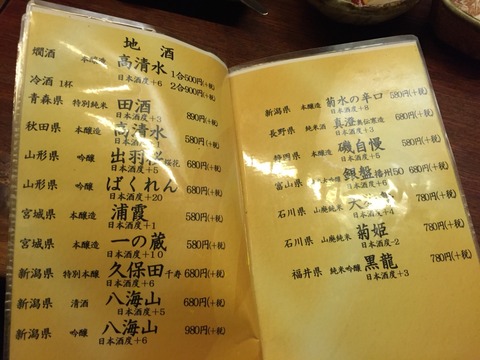 地酒
燗酒 本醸造 高清水 1合500円(+税)
日本酒度+6 2合900円(+税)
冷酒 1杯
青森県 特別純米 田酒 890円(+税)
日本酒度+3
秋田県 本醸造 高清水 580円(+税)
日本酒度+1
山形県 吟醸 出羽桜 桜花 680円(+税)
日本酒度+5
山形県 吟醸 ばくれん 680円(+税)
日本酒度+20
宮城県 本醸造 浦霞 580円(+税)
日本酒度+1
宮城県 本醸造 一の蔵 580円(+税)
日本酒度+10
新潟県 特別本醸 久保田 千寿 680円(+税)
日本酒度+6
新潟県 清酒 八海山 680円(+税)
日本酒度+5
新潟県 吟醸 八海山 980円(+税)
日本酒度+6
新潟県 本醸造 菊水の辛口 580円(+税)
日本酒度+8
長野県 純米酒 真澄 奥伝寒造 680円(+税)
日本酒度+3
静岡県 本醸造 磯自慢 680円(+税)
日本酒度+5
富山県 米大吟醸 銀盤 播州50 680円(+税)
日本酒度+6
石川県 山廃純米 780円(+税)
日本酒度+4
石川県 山廃純米 菊姫 780円(+税)
日本酒度-2
福井県 純米吟醸 黒龍 780円(+税)
日本酒度+3